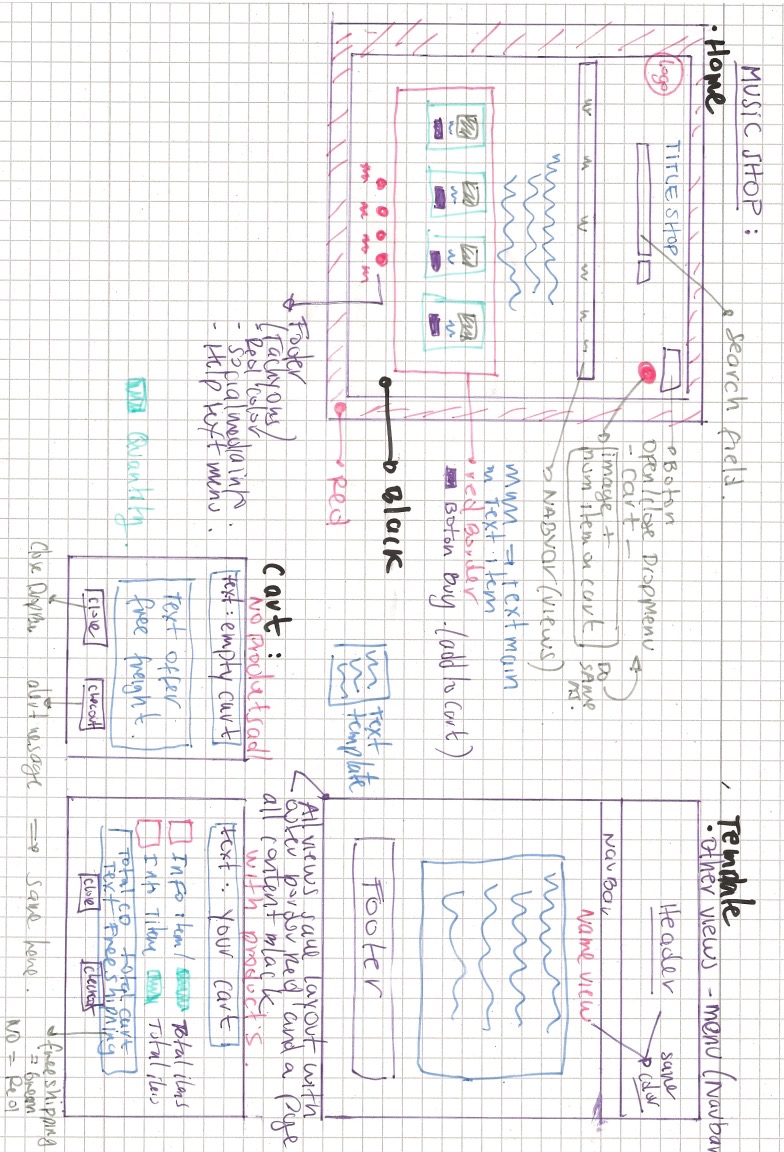 MUSIC SHOP :
search field.
• Home
logo
TITLE SHOP
Boton
Open/close DropMenu
- cart -
image +
num item on cart
DO
SAME
NABVAR (views)
text main
Text item
red Border
Boton Buy . (add to cart)
Black
Red
Footer
(Tachyons)
- Red color
- Social media info .
- Help text menu .
Text
template
Quantity .
Template
• other views - menu (Navbar
Header
same
color
NavBar
Name view
Footer
All views same layout with
outer border red and a page
all content black
Cart :
No products ad
text : empty cart
Text offer
free freight .
close
checout
Close DropMenu
alert mesage
⇒ same here .
with product's .
text : your cart
Info item /
Total items
Info Titem
Total items
Total CD total cart
Text Free Shipning
close
checkout
free shipping
= Green
NO = Red